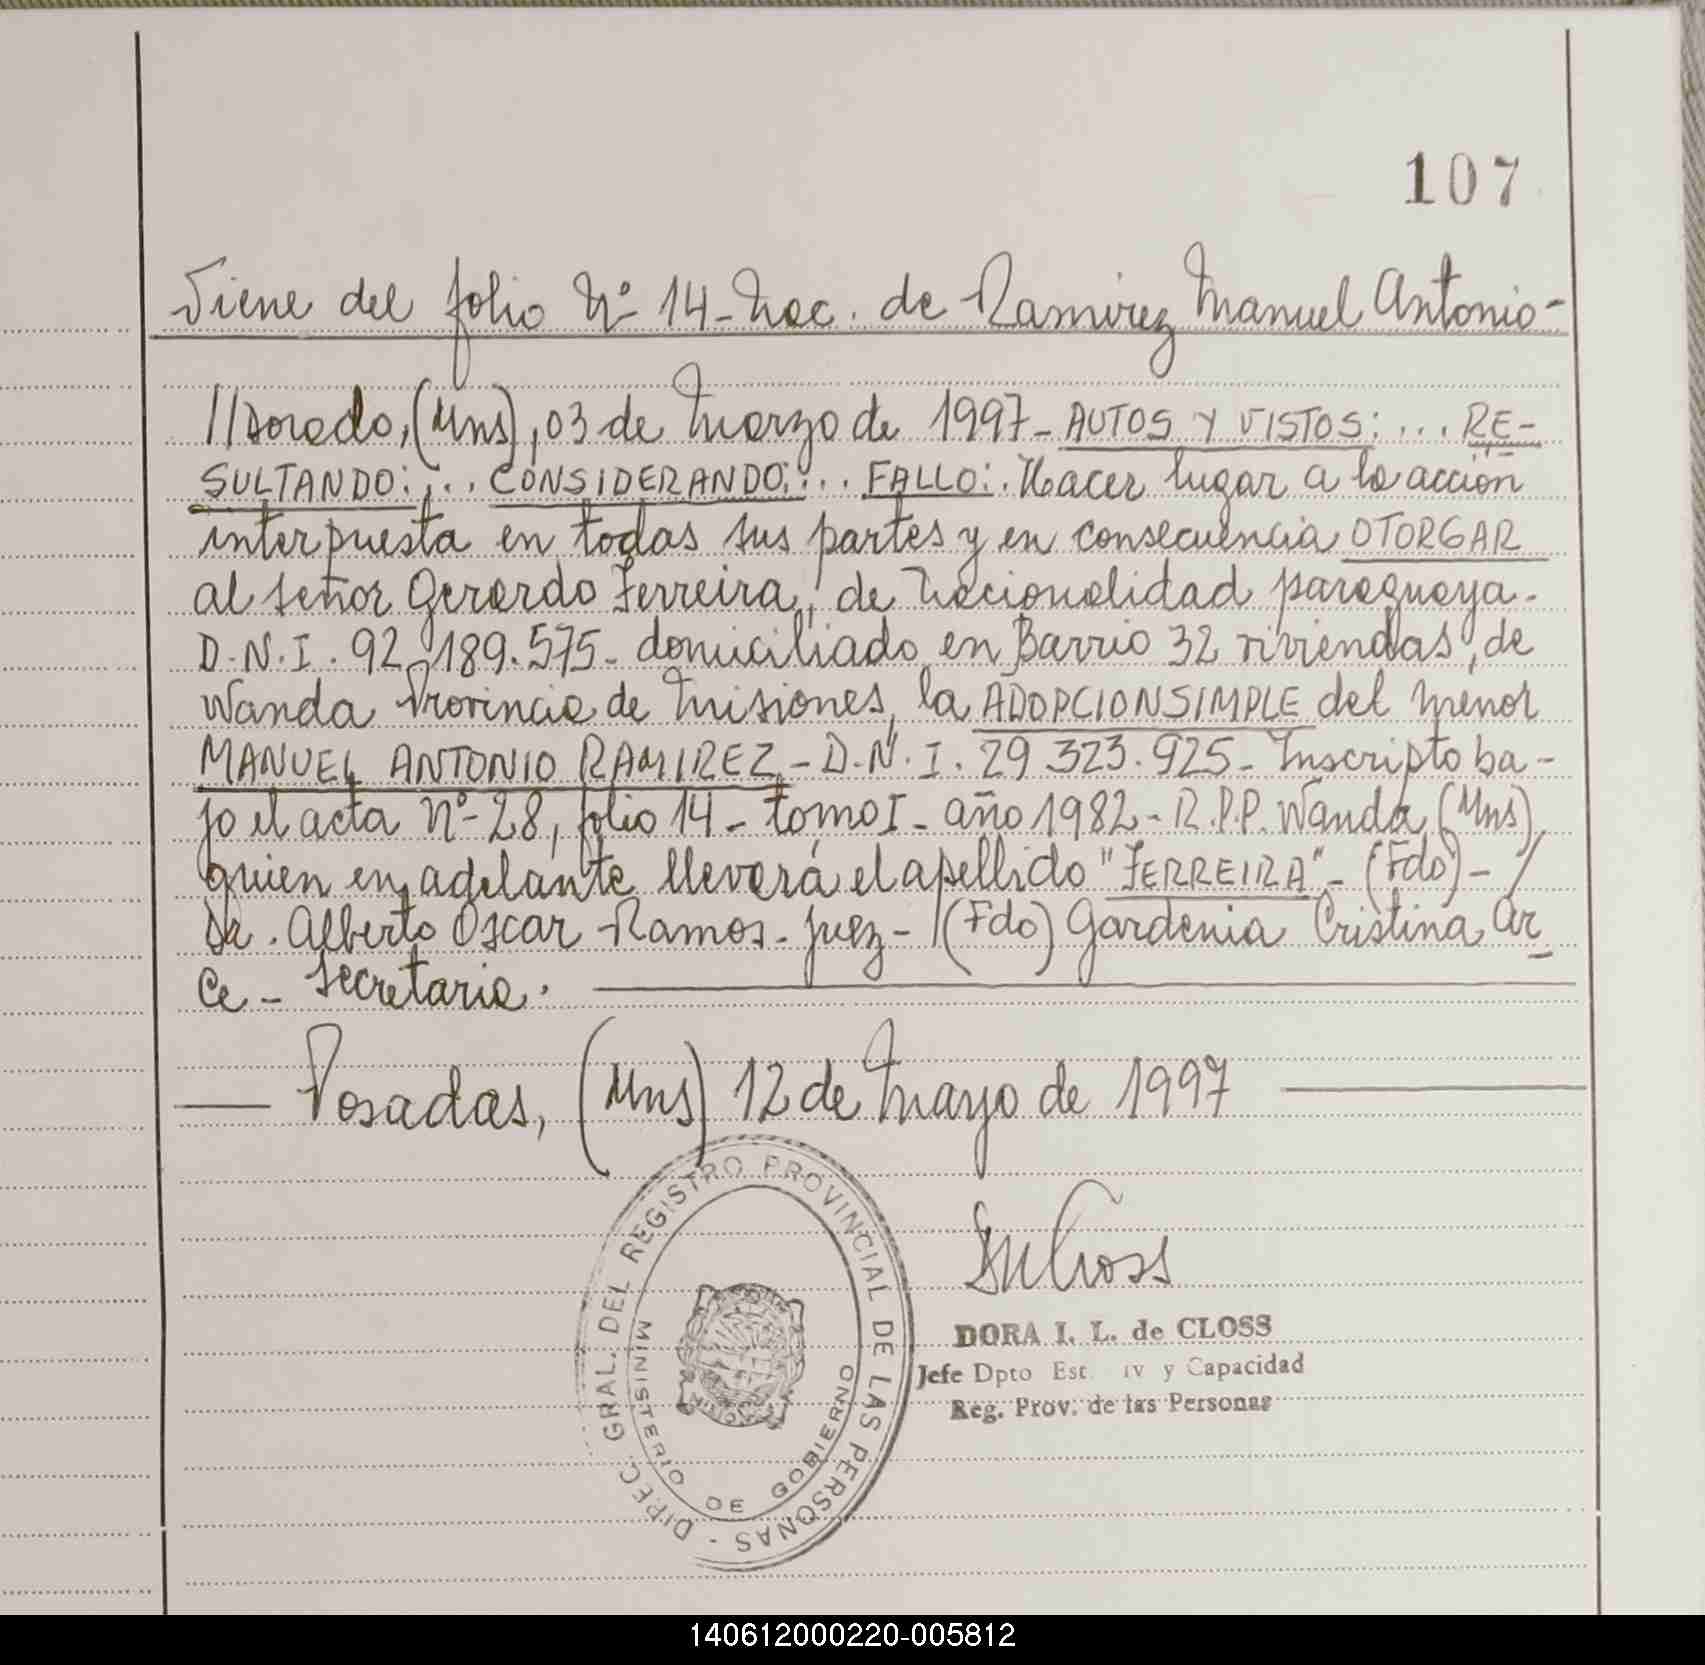 107
Viene del folio Nº 14 - Nac. de Ramirez Manuel Antonio -
//Dorado, (Mns), 03 de Marzo de 1997 - AUTOS Y VISTOS: ... RE-
SULTANDO: ... CONSIDERANDO: ... FALLO: Hacer lugar a la acción
interpuesta en todas sus partes y en consecuencia OTORGAR
al señor Gerardo Ferreira, de Nacionalidad paraguaya -
D.N.I. 92.189.575 - domiciliado en Barrio 32 viviendas, de
Wanda Provincia de Misiones, la ADOPCION SIMPLE del menor
MANUEL ANTONIO RAMIREZ - D.N.I. 29.323.925 - Inscripto ba-
jo el acta Nº 28, folio 14 - tomo I - año 1982 - R.P.P. Wanda (Mns),
quien en adelante llevará el apellido "FERREIRA" - (Fdo) - /
Dr. Alberto Oscar Ramos - Juez - (Fdo) Gardenia Cristina Ar
ce - Secretaria.
Posadas, (Mns) 12 de Mayo de 1997
DIREC. GRAL. DEL REGISTRO PROVINCIAL DE LAS PERSONAS -
MINISTERIO DE GOBIERNO
DORA I. L. de CLOSS
Jefe Dpto Est. iv y Capacidad
Reg. Prov. de las Personas
140612000220-005812